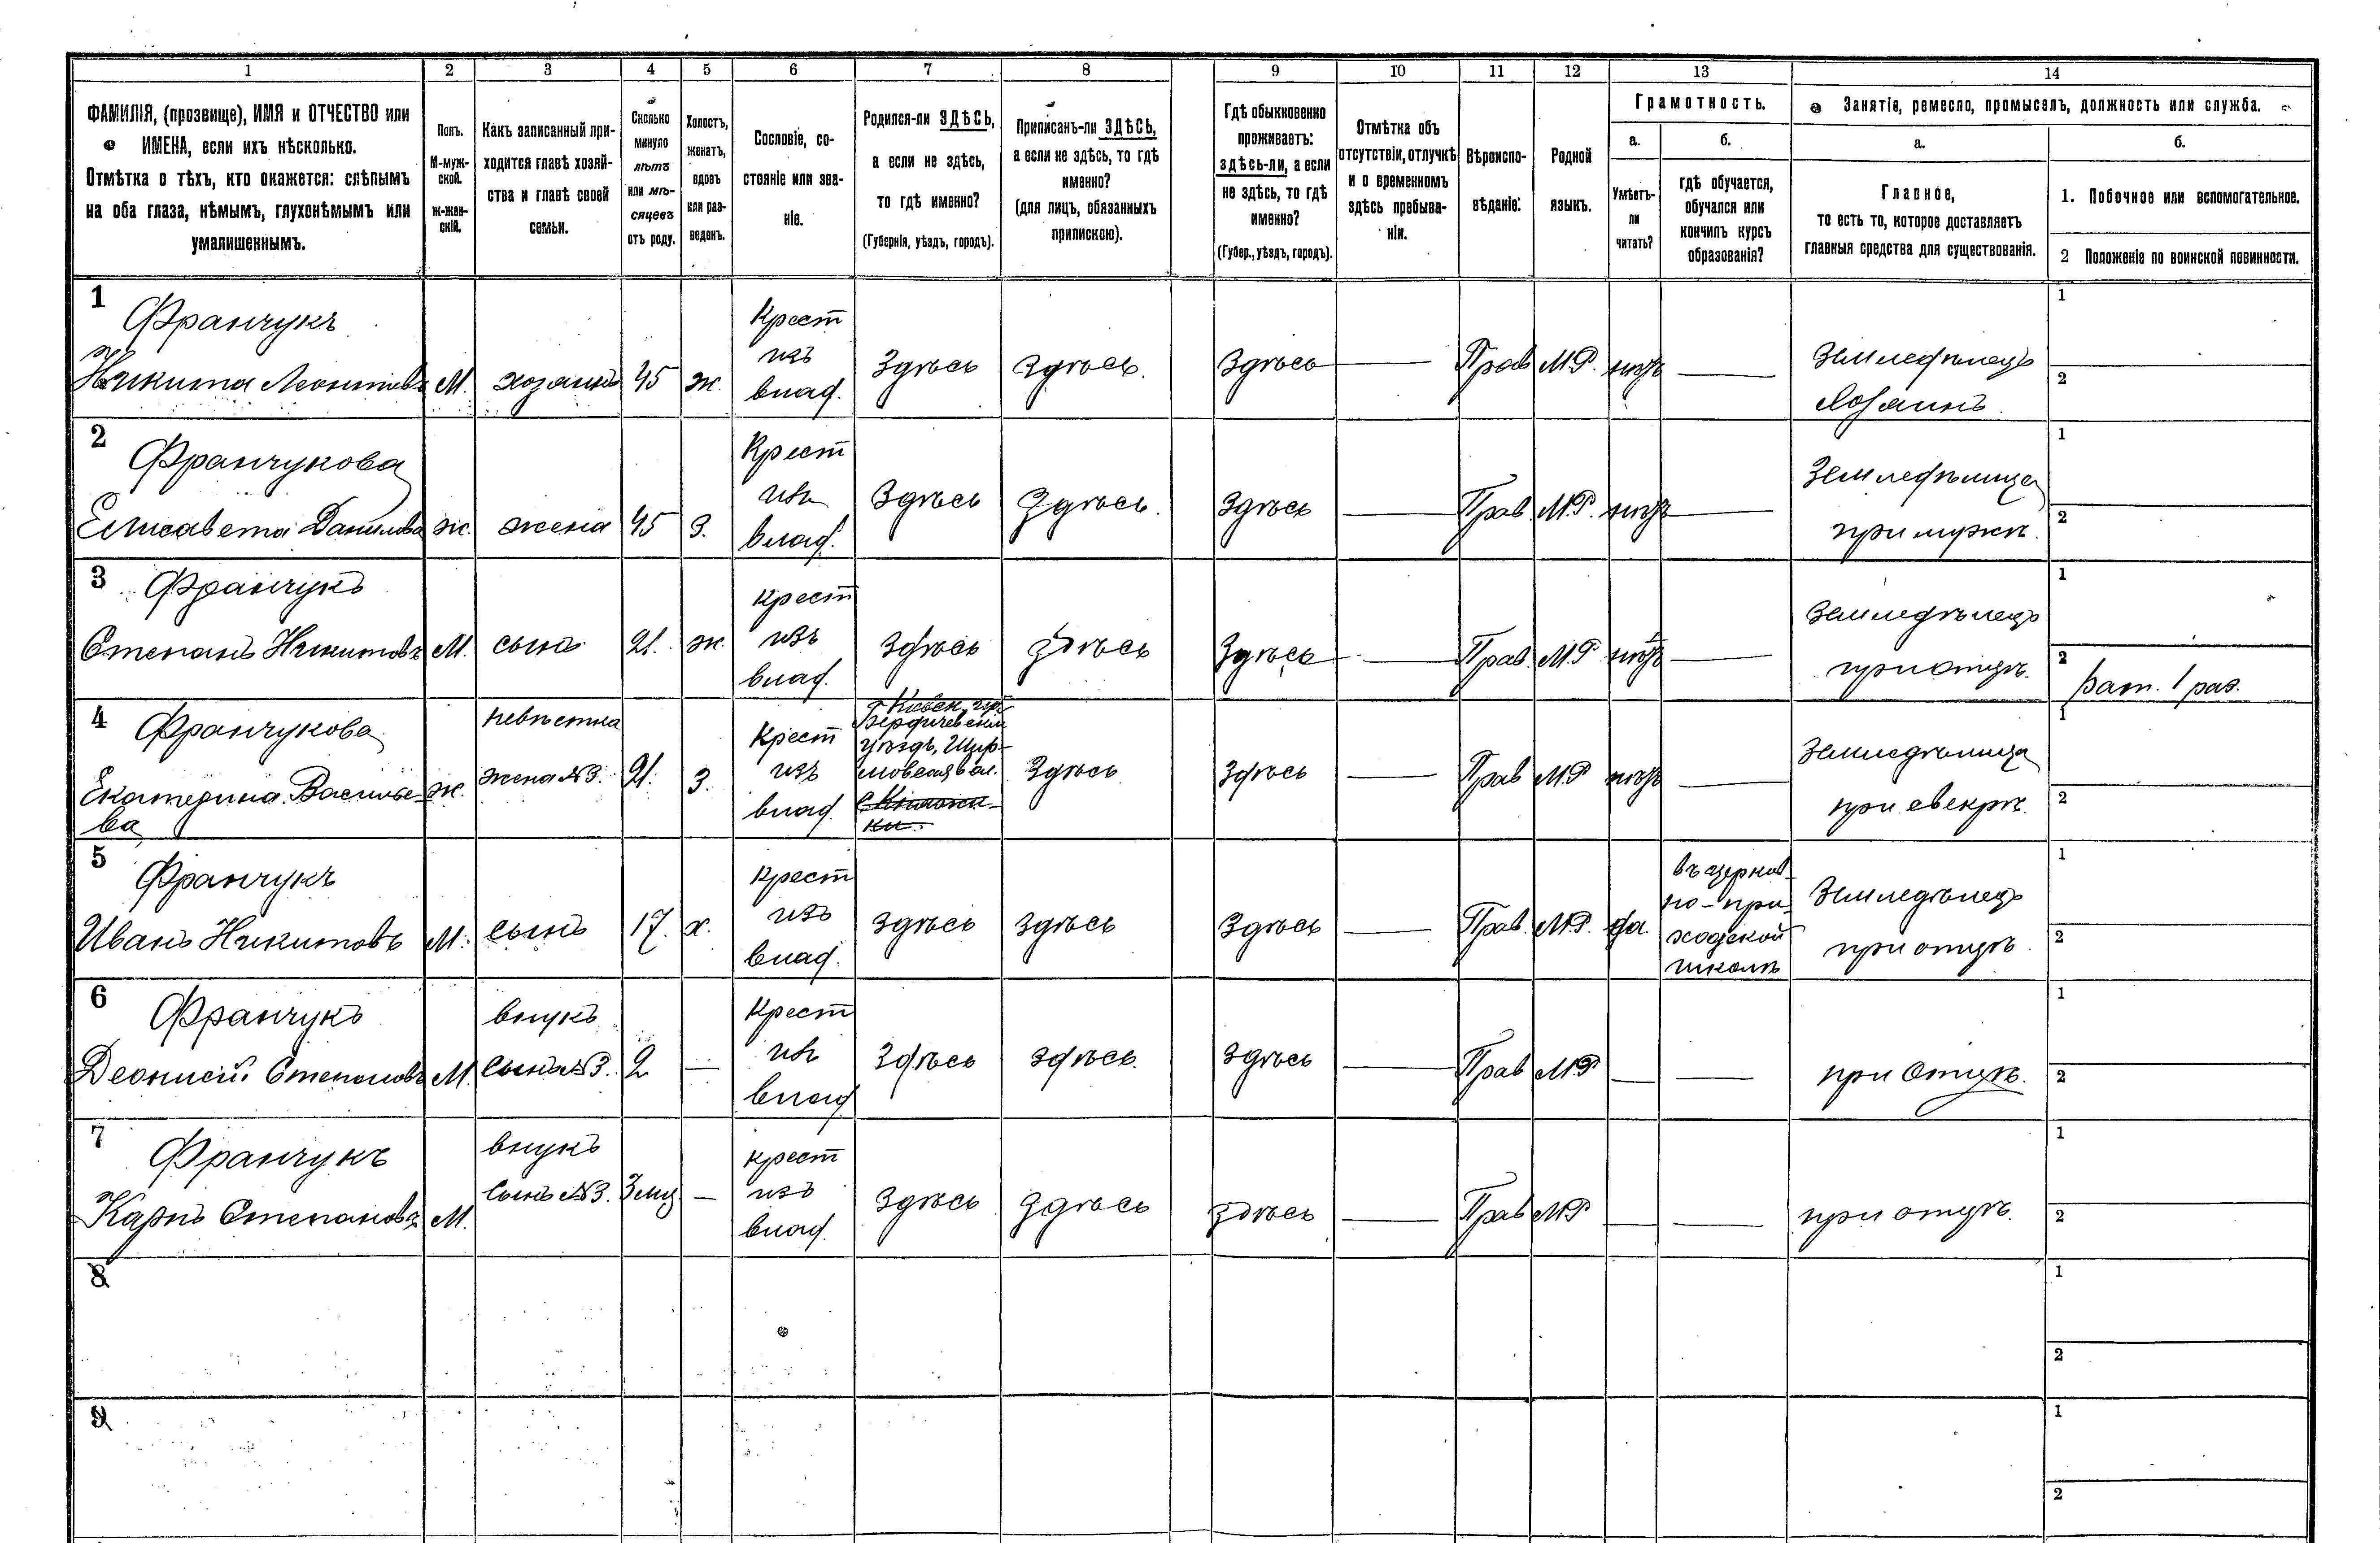 1 2 3 4 5 6 7 8 9 10 11 12 13 14
ФАМИЛІЯ, (прозвище), ИМЯ и ОТЧЕСТВО или
ИМЕНА, если ихъ нѣсколько.
Отмѣтка о тѣхъ, кто окажется: слѣпымъ
на оба глаза, нѣмымъ, глухонѣмымъ или
умалишеннымъ.
Полъ.
М-муж-
ской.
ж-жен-
скій.
Какъ записанный при-
ходится главѣ хозяй-
ства и главѣ своей
семьи.
Сколько
минуло
лѣтъ
или мѣ-
сяцевъ
отъ роду.
Холостъ,
женатъ,
вдовъ
или раз-
веденъ.
Сословіе, со-
стояніе или зва-
ніе.
Родился-ли ЗДѢСЬ,
а если не здѣсь,
то гдѣ именно?
(Губернія, уѣздъ, городъ).
Приписанъ-ли ЗДѢСЬ,
а если не здѣсь, то гдѣ
именно?
(для лицъ, обязанныхъ
припискою).
Гдѣ обыкновенно
проживаетъ:
здѣсь-ли, а если
не здѣсь, то гдѣ
именно?
(Губер., уѣздъ, городъ).
Отмѣтка объ
отсутствіи, отлучкѣ
и о временномъ
здѣсь пребыва-
ніи.
Вѣроиспо-
вѣданіе.
Родной
языкъ.
Грамотность.
а.
Умѣетъ-
ли
читать?
б.
гдѣ обучается,
обучался или
кончилъ курсъ
образованія?
Занятіе, ремесло, промыселъ, должность или служба.
а.
Главное,
то есть то, которое доставляетъ
главныя средства для существованія.
б.
1. Побочное или вспомогательное.
2 Положеніе по воинской повинности.
1
Франчукъ
Никита Леонтіевъ
М.
хозяинъ
45
ж.
Крест
изъ
влад.
Здѣсь
Здѣсь.
Здѣсь
—
Прав
М.Р.
нѣтъ
—
Земледѣлецъ
Хозяинъ.
1
2
2
Франчукова
Елисавета Данилова
ж.
жена
45
З.
Крест
изъ
влад.
Здѣсь
Здѣсь.
Здѣсь
—
Прав.
М.Р.
нѣтъ
—
Земледѣлица
при мужѣ.
1
2
3
Франчукъ
Степанъ Никитовъ
М.
сынъ
21.
ж.
крест
изъ
влад.
Здѣсь
Здѣсь
Здѣсь
—
Прав.
М.Р
нѣтъ
—
Земледѣлецъ
при отцѣ.
1
2
рат. 1 раз.
4
Франчукова
Екатерина Василье-
ва
ж.
невѣстка
жена №3.
21.
З.
Крест
изъ
влад.
Кіевск. губ.
Бердичевскій
уѣздъ,
вол.
Здѣсь
Здѣсь
—
Прав
М.Р
нѣтъ
—
Земледѣлица
при свекрѣ.
1
2
5
Франчукъ
Иванъ Никитовъ
М.
сынъ
17.
х.
крест
изъ
влад.
здѣсь
здѣсь
Здѣсь
—
Прав.
М.Р.
да.
въ церков-
но-при-
ходской
школѣ
Земледѣлецъ
при отцѣ.
1
2
6
Франчукъ
Деонисій Степановъ
М.
внукъ
Сынъ №3.
2
—
Крест
изъ
влад
Здѣсь
здѣсь.
здѣсь
—
Прав
М.Р
—
—
при Отцѣ.
1
2
7
Франчукъ
Карпъ Степановъ
М.
внукъ
Сынъ №3.
3 мц
—
крест
изъ
влад.
Здѣсь
Здѣсь
Здѣсь
—
Прав
М.Р
—
—
при отцѣ.
1
2
8
1
2
9
1
2